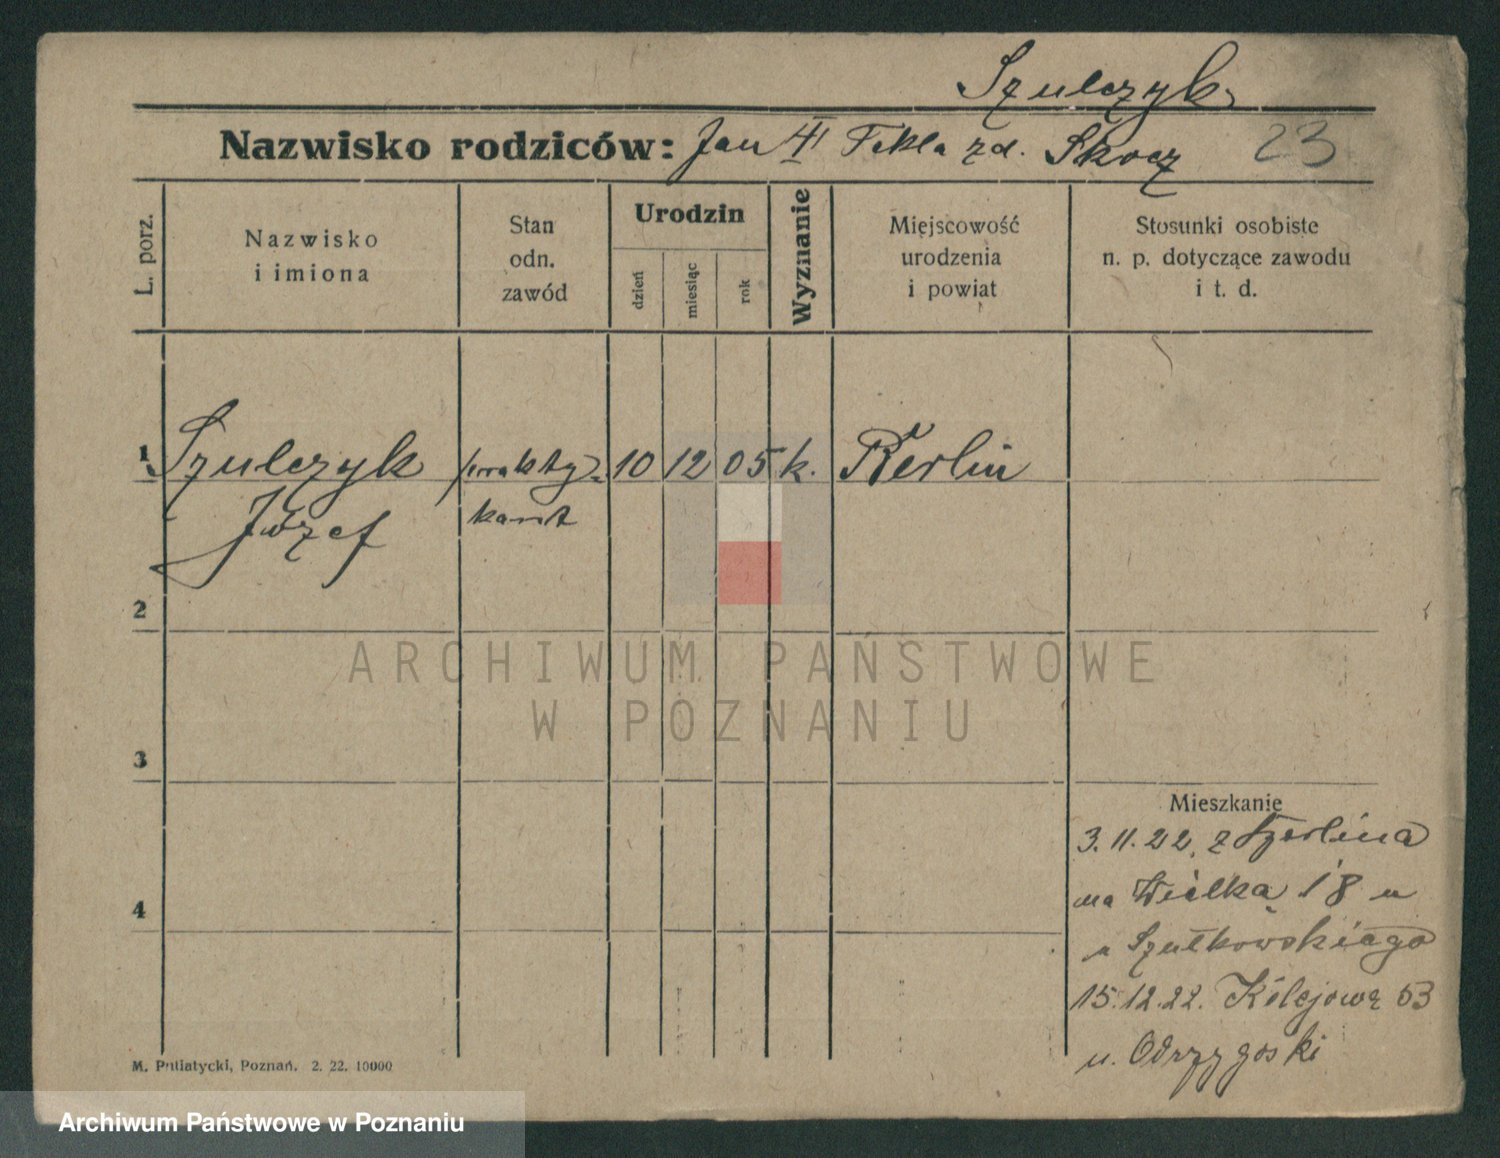 Szulczyk
Nazwisko rodziców: Jan Tekla zd. Skocz 23
L. porz.
Nazwisko
i imiona
Stan
odn.
zawód
Urodzin
dzień
miesiąc
rok
Wyznanie
Miejscowość
urodzenia
i powiat
Stosunki osobiste
n. p. dotyczące zawodu
i t. d.
1 Szulczyk prakty- 10 12 05 k. Berlin
Józef kant
2
ARCHIWUM PAŃSTWOWE
W POZNANIU
3
Mieszkanie
3. 11. 22. z Berlina
na Wielka 18
u Szułkowskiego
4
15. 12. 22. Kolejowa 53
u. Odrzygoski
M. Putiatycki, Poznań. 2. 22. 10000
Archiwum Państwowe w Poznaniu